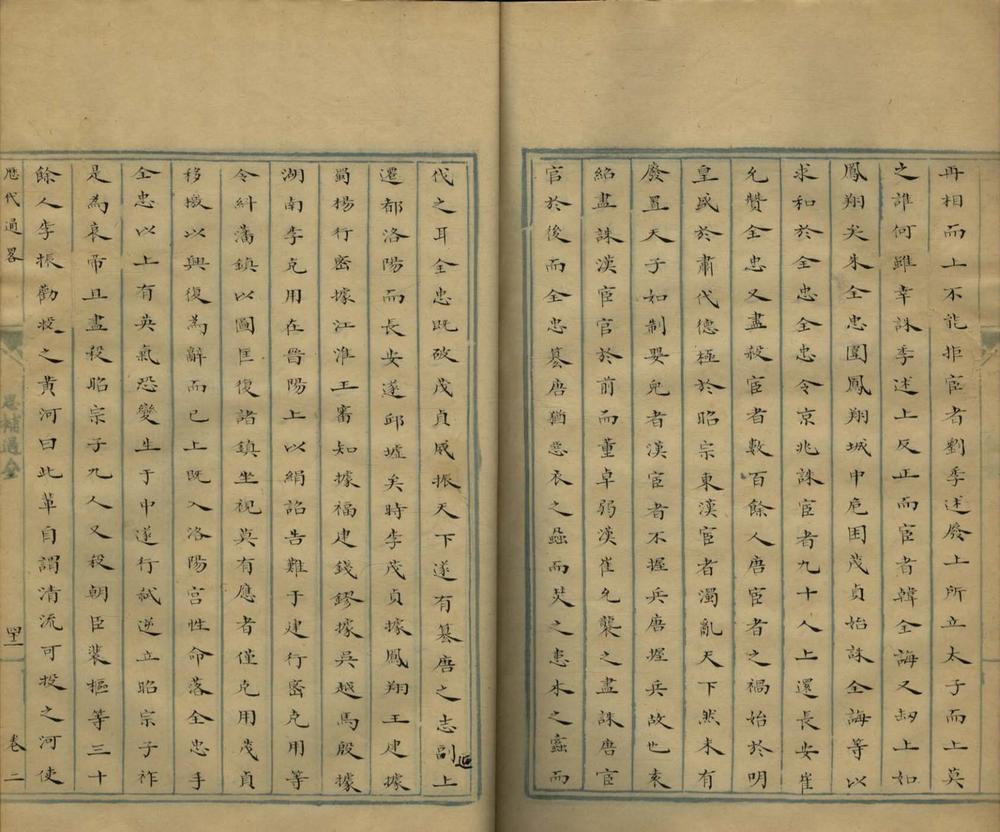 再相而上不能拒宦者劉季述廢上所立太子而上莫
之誰何雖幸誅季述上反正而宦者韓全誨又刼上如
鳳翔矣朱全忠圍鳳翔城中危困茂貞始誅全誨等以
求和於全忠全忠令京兆誅宦者九十人上還長安崔
允贊全忠又盡殺宦者數百餘人唐宦者之禍始於明
皇盛於肅代德極於昭宗東漢宦者濁亂天下然未有
廢置天子如制嬰兒者漢宦者不握兵唐握兵故也袁
紹盡誅漢宦官於前而董卓弱漢崔允襲之盡誅唐宦
官於後而全忠簒唐猶惡衣之蝨而焚之患木之蠹而
代之耳全忠既破茂貞威振天下遂有簒唐之志副上
廹
遷都洛陽而長安遂邱墟矣時李茂貞據鳳翔王建據
蜀楊行密據江淮王審知據福建錢鏐據吳越馬殷據
湖南李克用在晉陽上以絹詔告難于建行密克用等
令糾藩鎮以圖匡復諸鎮坐視莫有應者僅克用茂貞
移檄以興復為辭而已上既入洛陽宮性命落全忠手
全忠以上有英氣恐變生于中遂行弑逆立昭宗子祚
是為哀帝且盡殺昭宗子九人又殺朝臣裴樞等三十
餘人李振勸投之黃河曰此輩自謂清流可投之河使
歷代通畧
卷二